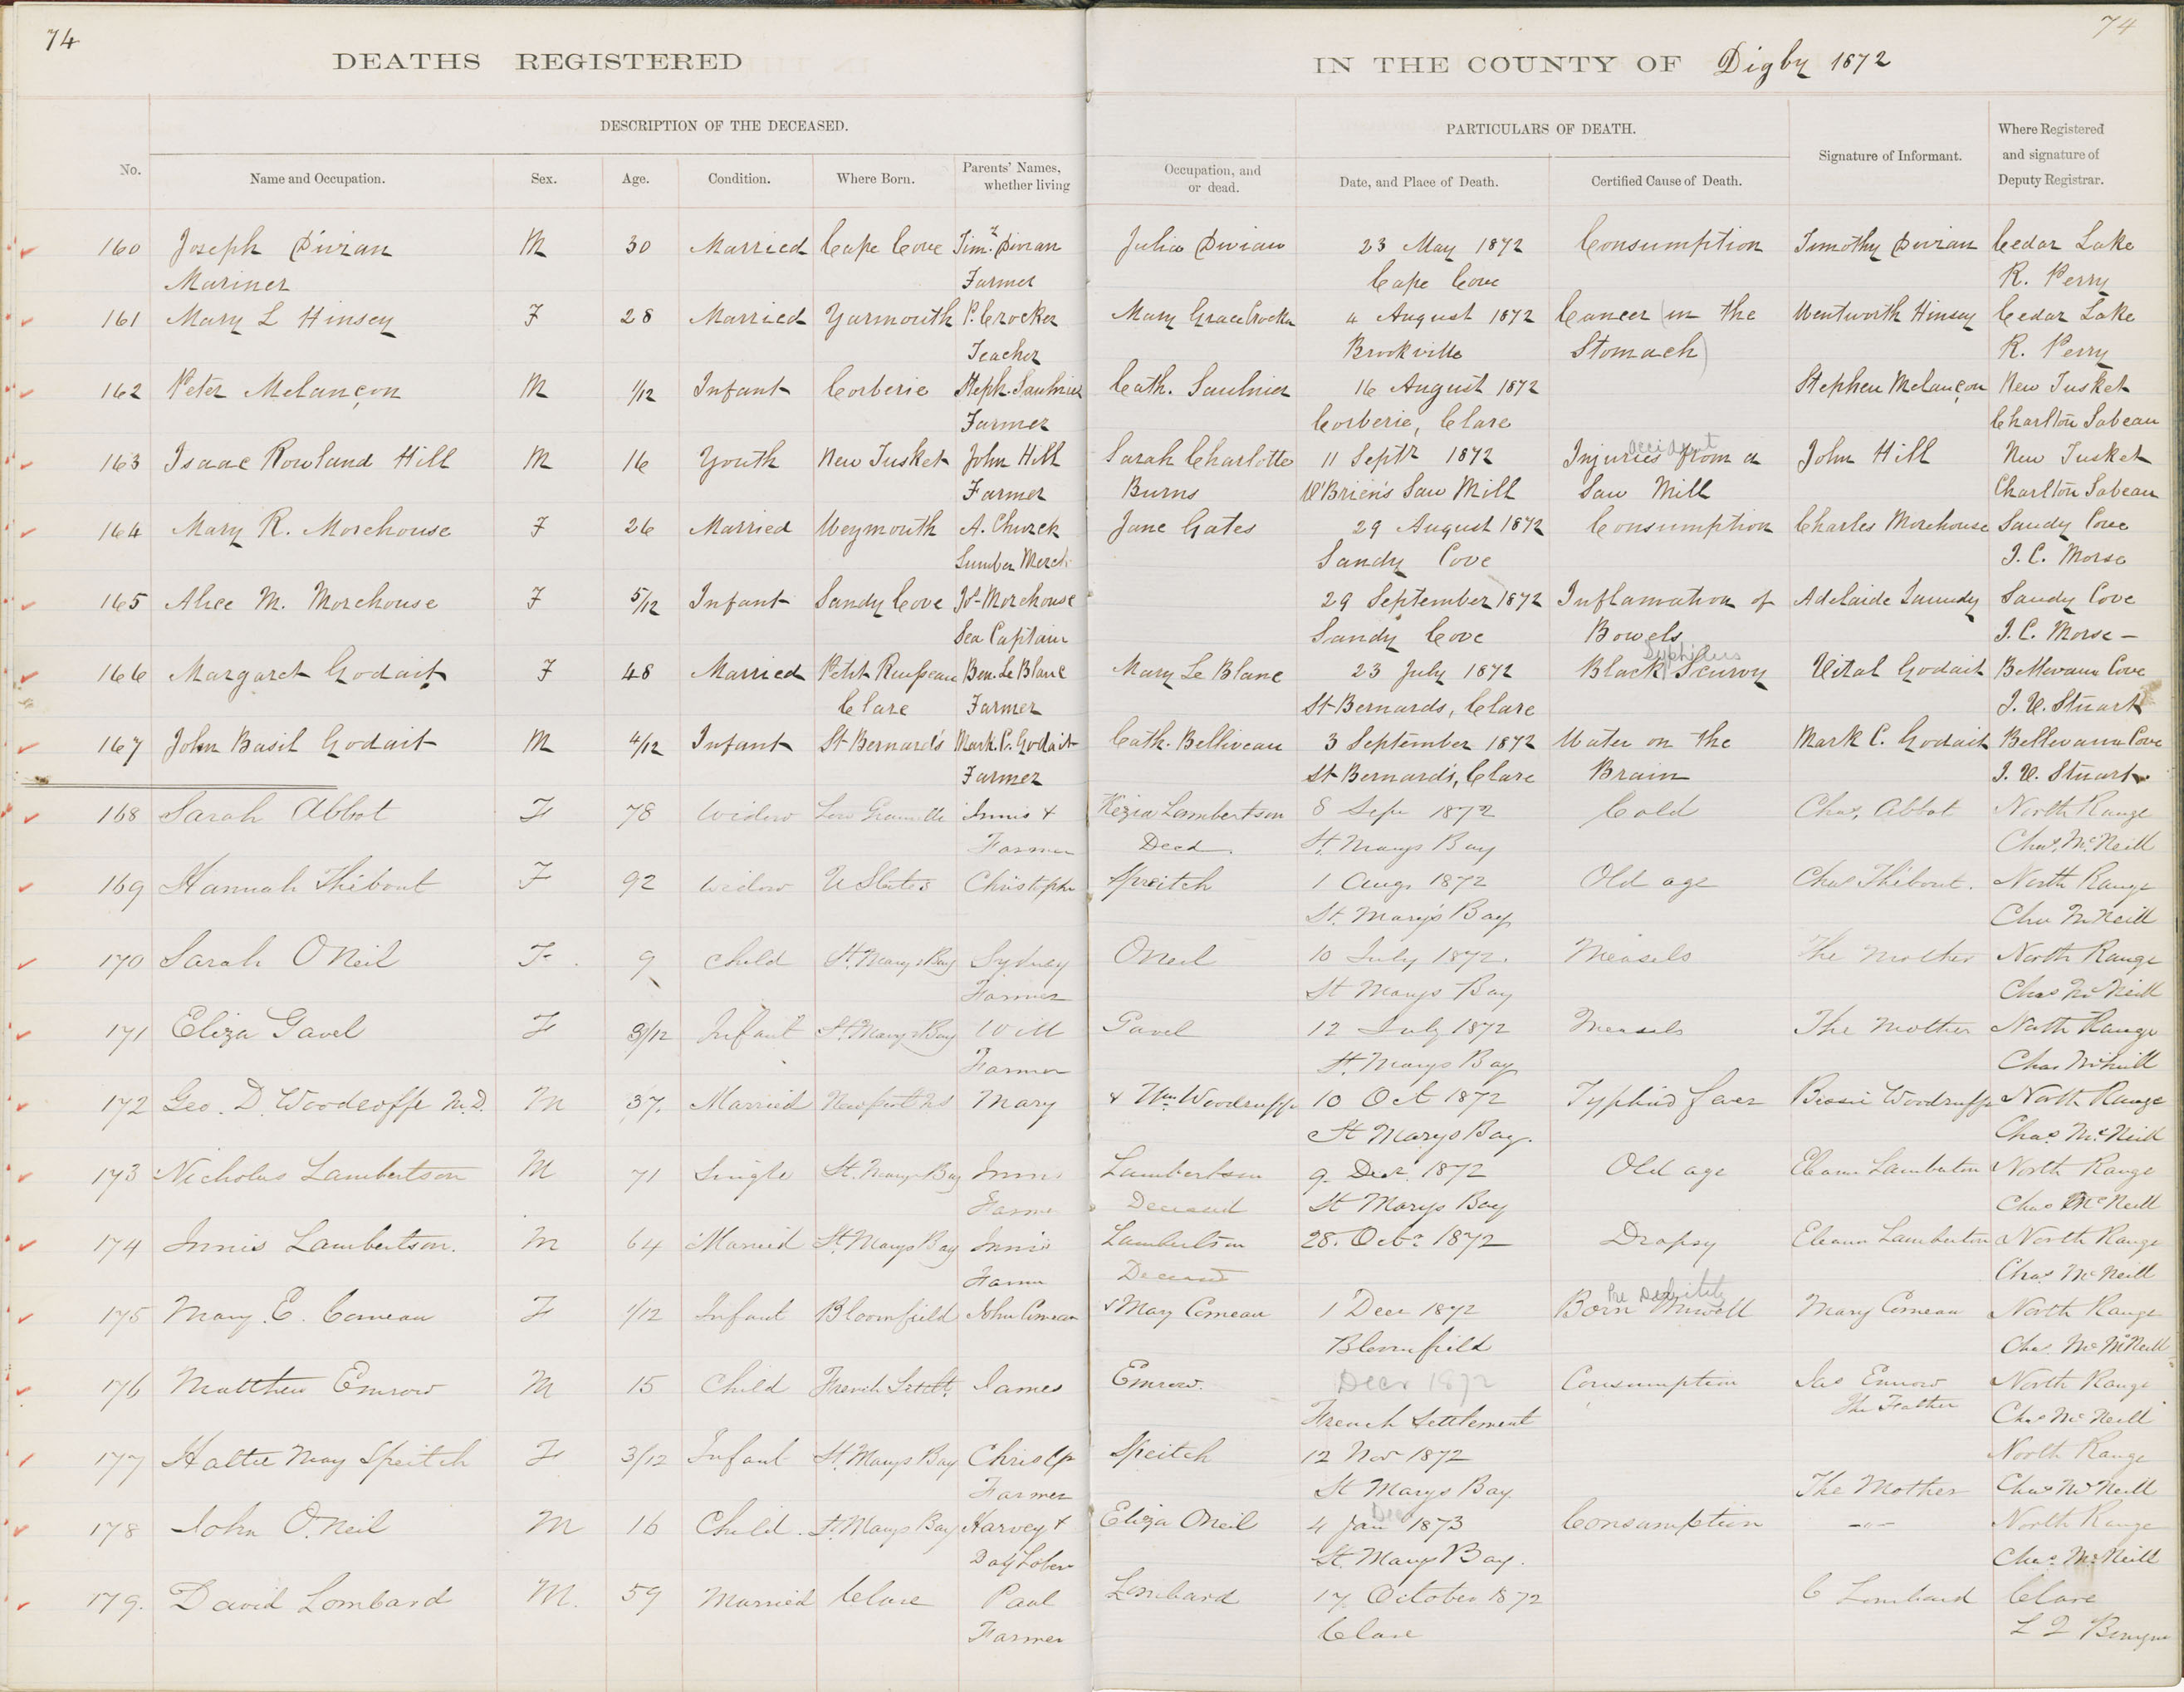 74
74
DEATHS REGISTERED IN THE COUNTY OF Digby 1872
DESCRIPTION OF THE DECEASED.
PARTICULARS OF DEATH.
No. Name and Occupation. Sex. Age. Condition. Where Born. Parents' Names, whether living Occupation, and or dead. Date, and Place of Death. Certified Cause of Death. Signature of Informant. Where Registered and signature of Deputy Registrar.
160 Joseph Divian M 30 Married Cape Cove Timy. Divian Julia Divian 23 May 1872 Consumption Timothy Divian Cedar Lake
Mariner Farmer Cape Cove R. Perry
161 Mary L Hinsey F 28 Married Yarmouth P. Crocker Mary Grace Crocker 4 August 1872 Cancer (in the Wentworth Hinsey Cedar Lake
Teacher Brookville Stomach) R. Perry
162 Peter Melançon M 1/12 Infant Corberie Steph. Saulnier Cath. Saulnier 16 August 1872 Stephen Melançon New Tusket
Farmer Corberie, Clare Charlton Sabean
163 Isaac Rowland Hill M 16 Youth New Tusket John Hill Sarah Charlotte 11 Septr 1872 Injuries from a John Hill New Tusket
accident
Farmer Burns O'Brien's Saw Mill Saw Mill Charlton Sabean
164 Mary R. Morehouse F 26 Married Weymouth A. Church Jane Gates 29 August 1872 Consumption Charles Morehouse Sandy Cove
Lumber Mercht Sandy Cove J. C. Morse
165 Alice M. Morehouse F 5/12 Infant Sandy Cove Jos. Morehouse 29 September 1872 Inflamation of Adelaide Saundy Sandy Cove
Sea Captain Sandy Cove Bowels J. C. Morse -
Syphilus
166 Margaret Godait F 48 Married Petit Ruisseau Ben. Le Blanc Mary Le Blanc 23 July 1872 Black Scurvy Vital Godait Belleveau Cove
Clare Farmer St Bernards, Clare J. U. Stuart
167 John Basil Godait M 4/12 Infant St Bernard's Mark. C. Godait Cath. Belliveau 3 September 1872 Water on the Mark C. Godait Belleveau Cove
Farmer St Bernard's, Clare Brain J. U. Stuart
168 Sarah Abbot F 78 Widow Innis + Kezia Lambertson 8 Sepr 1872 Cold Chas. Abbot North Range
Farmer Decd. St. Marys Bay Chas. McNeill
169 Hannah Thibout F 92 Widow U States Christophr Speitch 1 Aug. 1872 Old age Chas Thibout. North Range
St. Mary's Bay Chas McNeill
170 Sarah O Neil F. 9 Child St. Marys Bay Sydney ONeil 10 July 1872. Measels The Mother North Range
Farmer St Marys Bay Chas McNeill
171 Eliza Gavel F 3/12 Infant St. Marys Bay Will Gavel 12 July 1872 Measels The Mother North Range
Farmer St. Marys Bay Chas McNeill
172 Geo. D. Woodroffe M.D. M 37. Married Newport NS Mary & Wm Woodruffe 10 Oct 1872 Typhiod fever Bessie Woodruffe North Range
St Marys Bay. Chas McNeill
173 Nicholus Lambertson M 71 Single St. Marys Bay Innis Lambertson 9. Decr. 1872 Old age Eleanor Lamberton North Range
Farmer Deceased St Marys Bay Chas McNeill
174 Innis Lambertson. M 64 Married St. Marys Bay Innis Lambertson 28. Octr 1872 Dropsy Eleanor Lamberton North Range
Farmer Deceased Chas McNeill
Debility
175 Mary. E. Comeau F 1/12 Infant Bloomfield John Comeau & Mary Comeau 1 Decr 1872 Born Unwell Mary Comeau North Range
Bloomfield Chas. McNeill
176 Matthew Emrow M 15 Child French Settlt. James Emrow. Decr 1872 Consumption Jas Emrow North Range
French Settlement The Father Chas McNeill
177 Hattie May Speitch F 3/12 Infant St. Marys Bay Christp Speitch 12 Nov 1872 North Range
Farmer St Marys Bay. The Mother Chas McNeill
Dec
178 John O. Neil M 16 Child. St. Marys Bay Harvey + Eliza Oneil 4 Jan 1873 Consumption -"- North Range
Day Laber St. Marys Bay. Chas. McNeill
179. David Lombard M. 59 Married Clare Paul Lombard 17 October 1872 C Lombard Clare
Farmer Clare